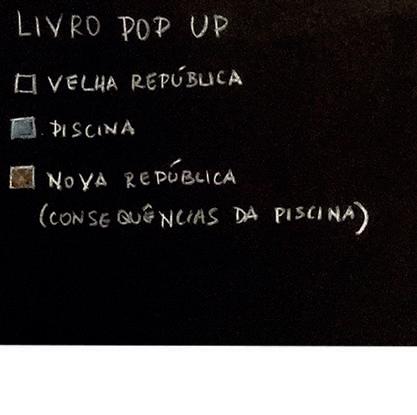 LIVRO POP UP
VELHA REPÚBLICA
PISCINA
NOVA REPÚBLICA
(CONSEQUÊNCIAS DA PISCINA)